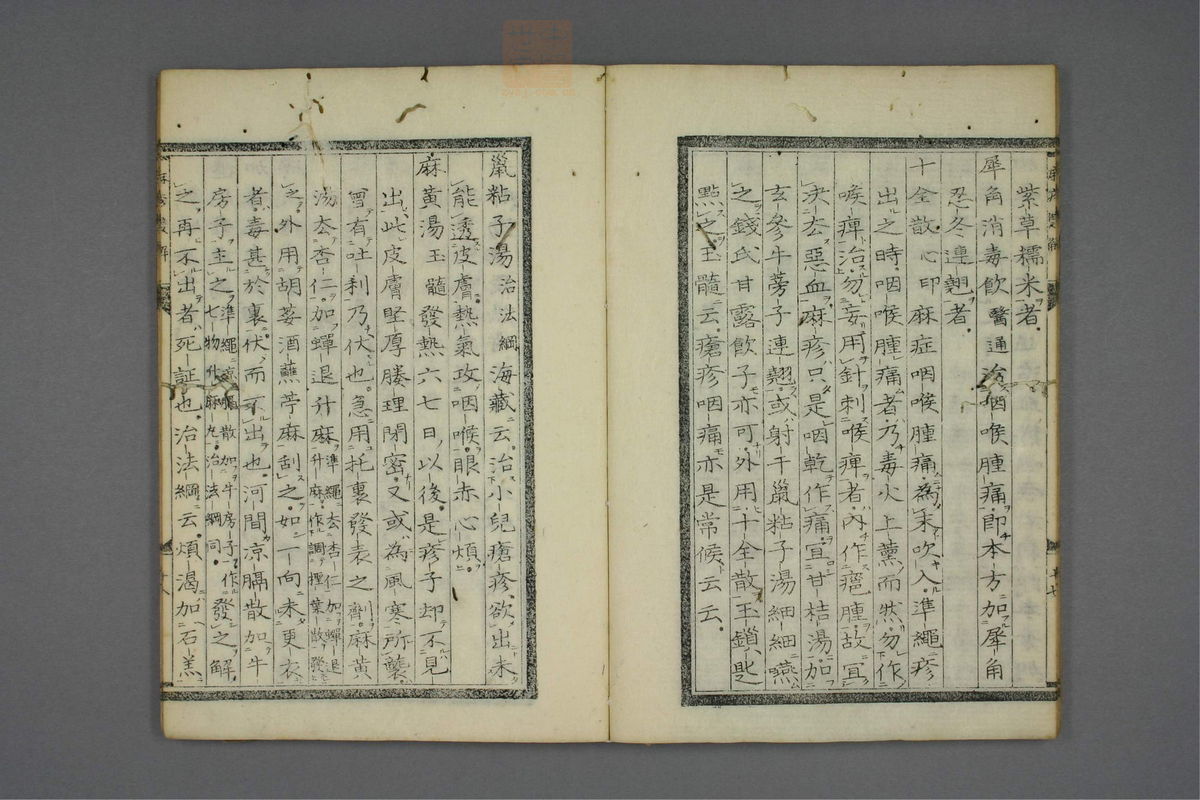 紫草糯米者。
犀角消毒飲 醫通治咽喉腫痛。即本方加犀角
忍冬連翹者。
十全散 心印麻症咽喉腫痛為末吹入。準繩疹
出之時。咽喉腫痛者。乃毒火上薰而然。勿作
喉痺治。勿妄用針刺喉痺者。内作瘡腫。故宜
決去惡血。麻疹只是咽乾作痛。宜甘桔湯加
玄參牛蒡子連翹。或射干鼠粘子湯細細嚥
之。錢氏甘露飲子亦可。外用十全散玉鎖匙
點之。玉髓云。瘡疹咽痛亦是常候云云。
鼠粘子湯 治法綱海藏云。治小兒瘡疹。欲出未
能透皮膚。熱氣攻咽喉。眼赤心煩。
麻黃湯 玉髓發熱六七日。以後。是疹子却不見
出。此皮膚堅厚腠理閉密。又或為風寒所襲。
曾有吐利。乃伏也。急用托裏發表之齊。麻黃
湯去杏仁。加蟬退升麻。準繩去杏仁加蟬退升麻作調葉散發
之。外用胡荽酒蘸苧麻刮之。如一向未更衣
者。毒甚於裏伏而不出也。河間涼膈散加牛
房子主之。準繩涼膈散加牛房子作七物升麻丸。治法綱同。發之解
之。再不出者死証也。治法綱云。煩渴加石羔